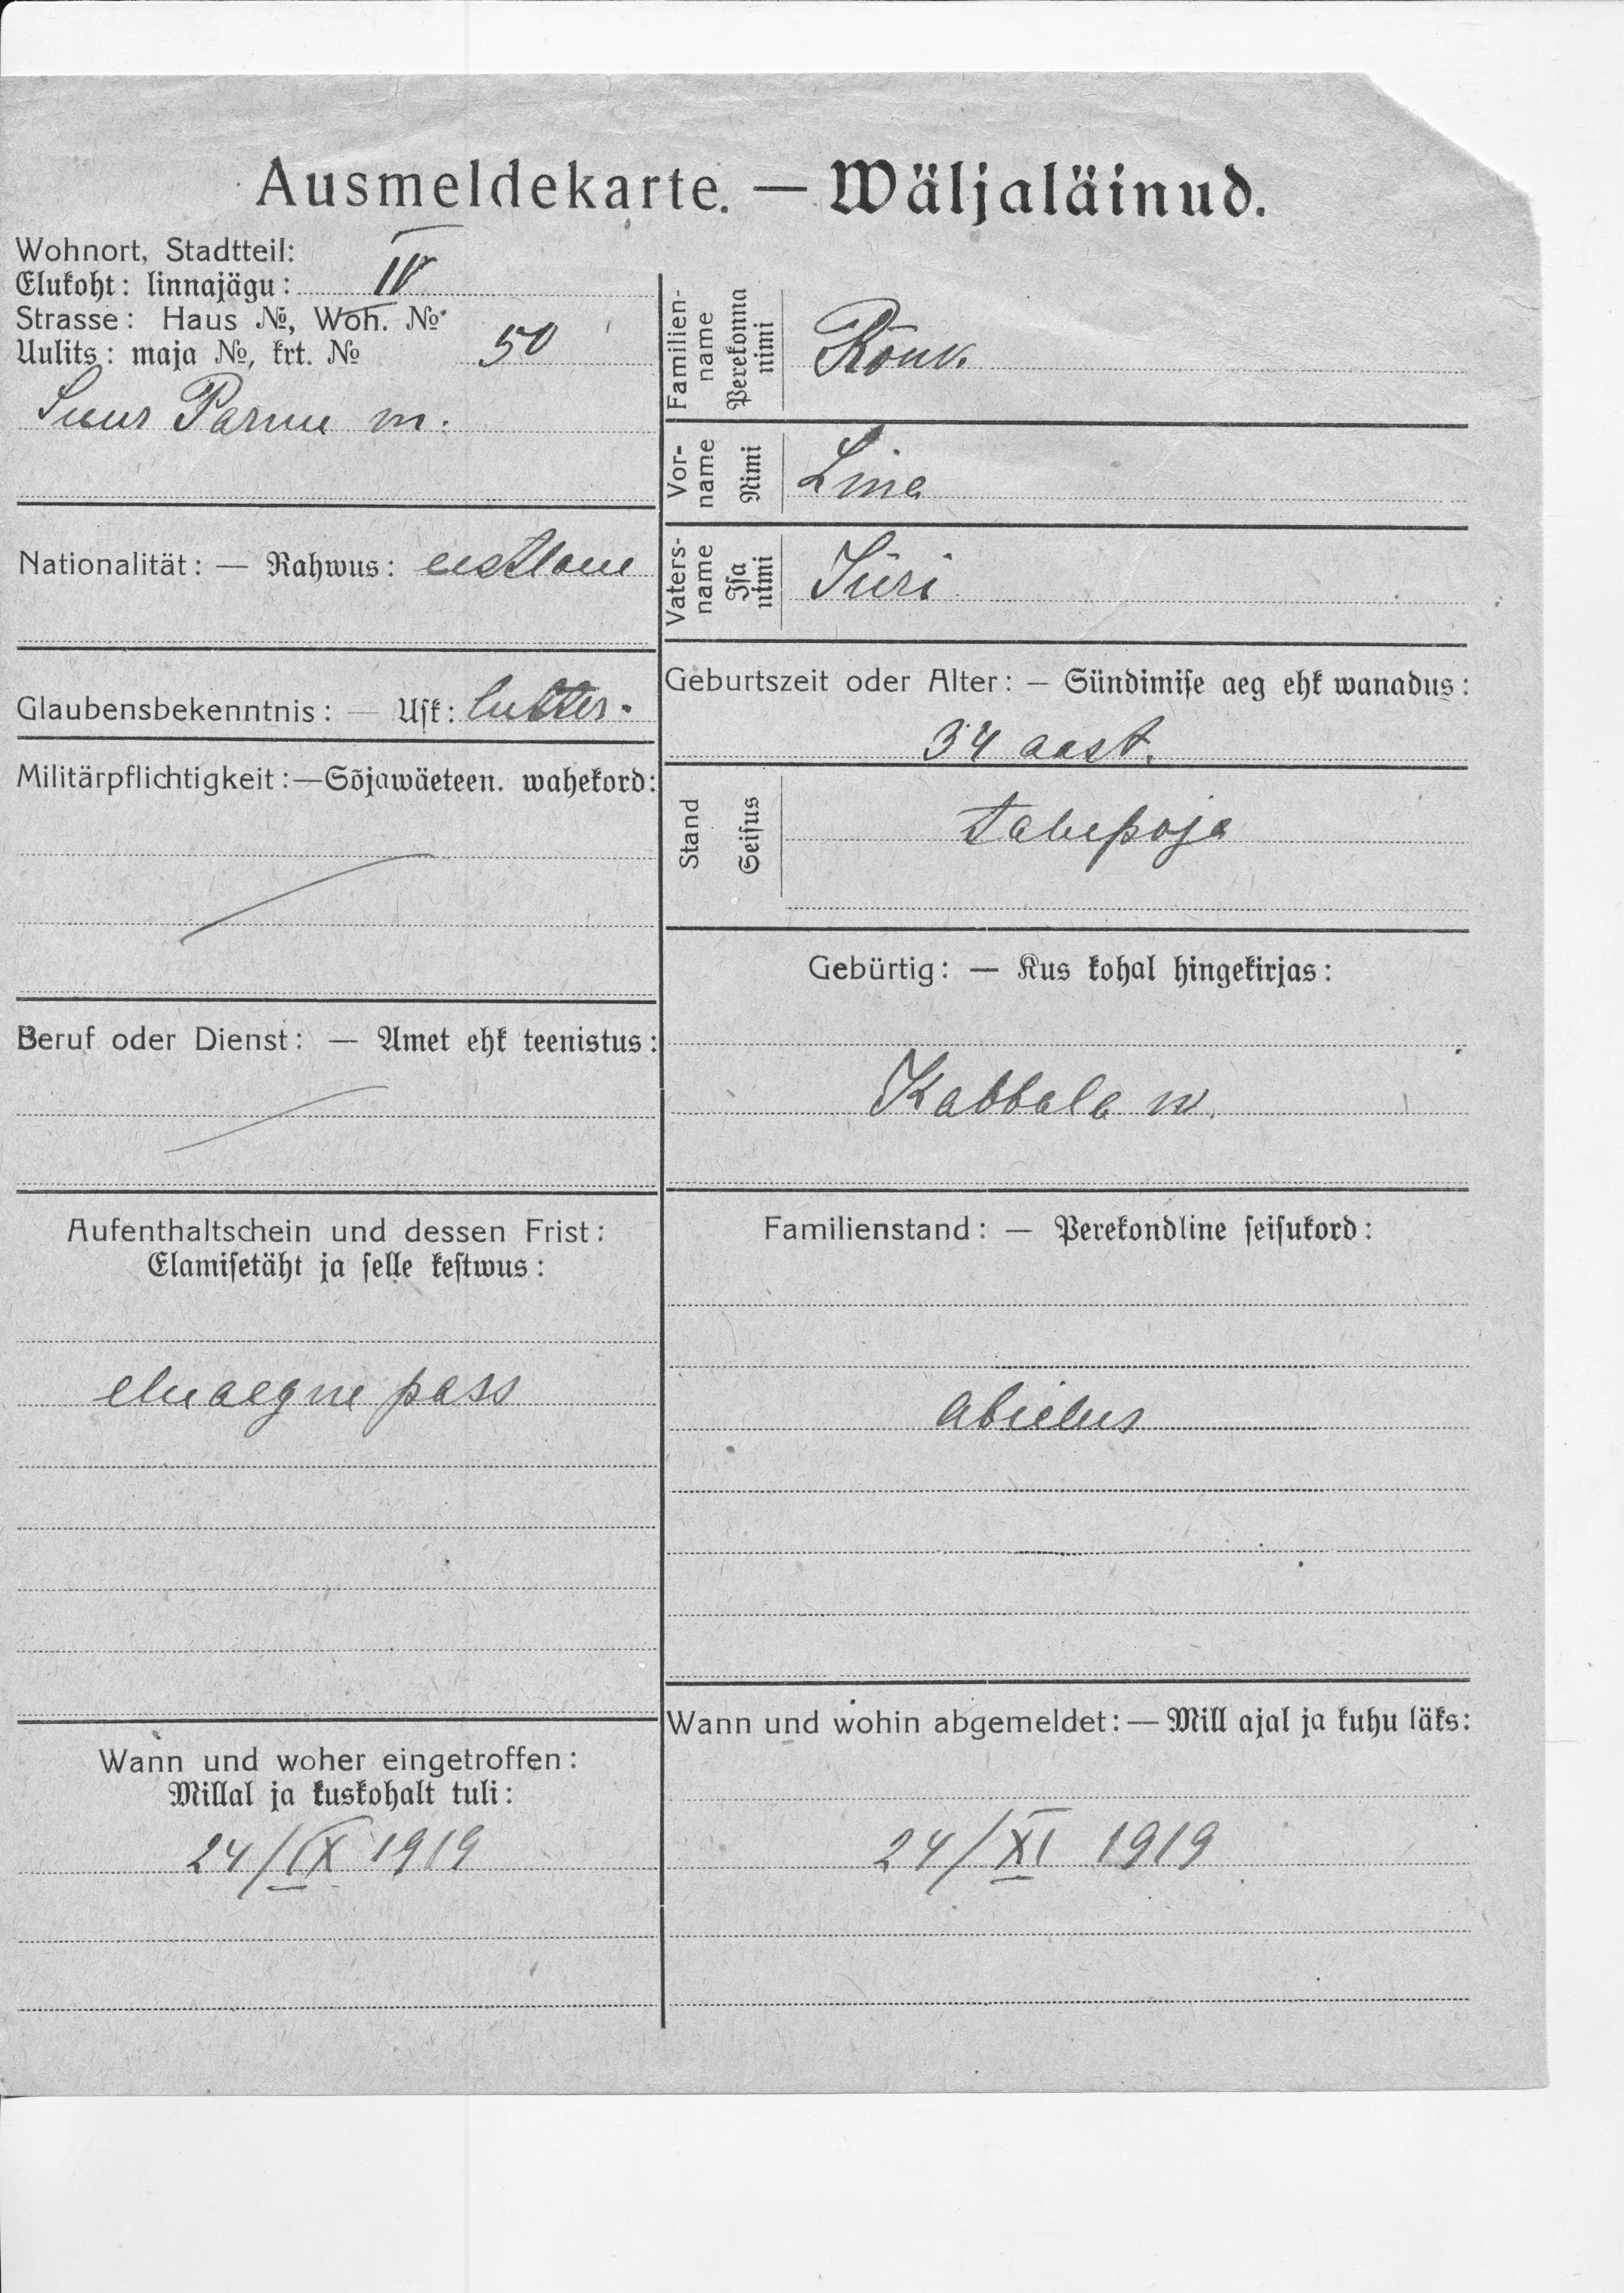 Ausmeldekarte. — Wäljaläinud.
Wohnort, Stadtteil:
Elukoht: linnajägu: IV
Strasse: Haus №, Woh. №
Uulits: maja №, krt. № 50
Suur Parnu m.
Nationalität: — Rahwus: eestlane
Glaubensbekenntnis: — Usk: lutter.
Militärpflichtigkeit: — Sõjawäeteen. wahekord:
Beruf oder Dienst: — Amet ehk teenistus:
Aufenthaltschein und dessen Frist:
Elamisetäht ja selle kestwus:
eluaegne pass
Wann und woher eingetroffen:
Millal ja kuskohalt tuli:
24/IX 1919
Familien-
name
Perekonna
nimi
Vor-
name
Nimi
Lina
Vaters-
name
Isa
nimi
Jüri
Geburtszeit oder Alter: — Sündimise aeg ehk wanadus:
34 aast.
Stand
Seisus
talupoja
Gebürtig: — Kus kohal hingekirjas:
Kabbala w.
Familienstand: — Perekondline seisukord:
abielus
Wann und wohin abgemeldet: — Mill ajal ja kuhu läks:
24/XI 1919